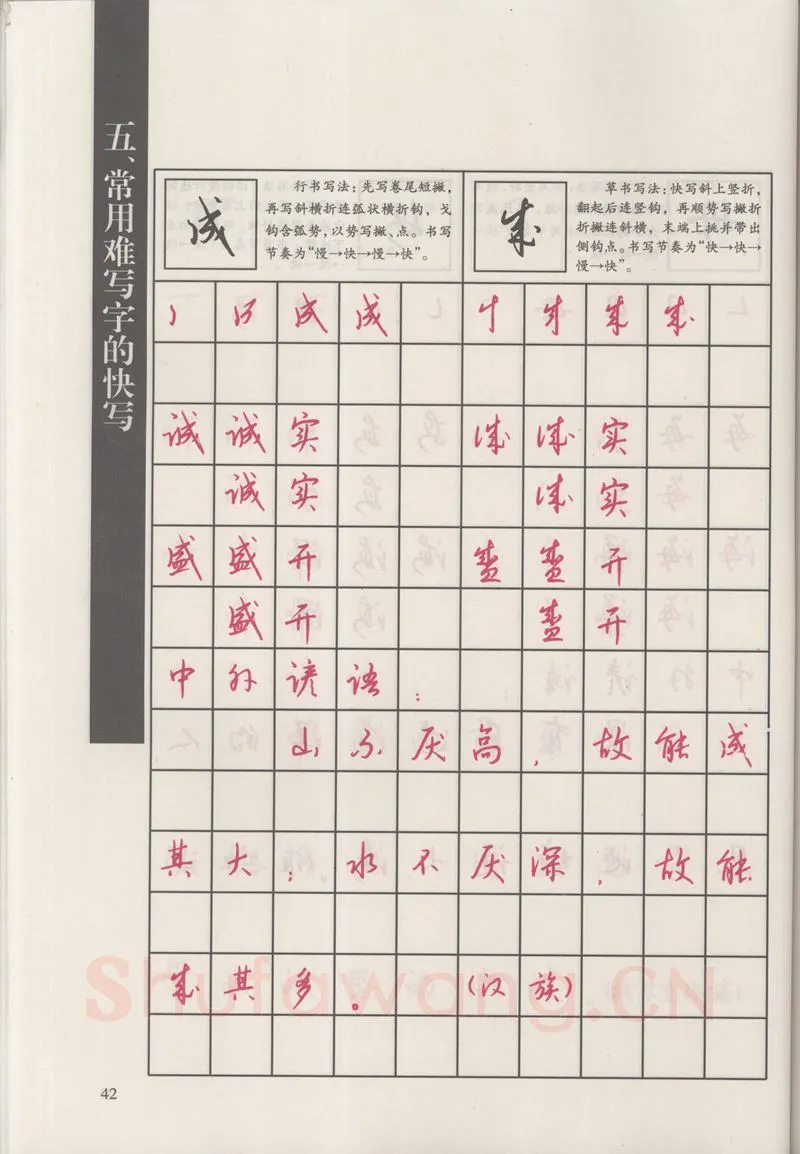 五、常用难写字的快写
成
行书写法：先写卷尾短撇，
再写斜横折连弧状横折钩，戈
钩含弧势，以势写撇、点。书写
节奏为“慢→快→慢→快”。
成
草书写法：快写斜上竖折，
翻起后连竖钩，再顺势写撇折
折撇连斜横，末端上挑并带出
侧钩点。书写节奏为“快→快→
慢→快”。
成 成 成
诚 诚 实 诚 诚 实
诚 实 诚 实
盛 盛 开 盛 盛 开
盛 开 盛 开
中 外 谚 语 ：
山 不 厌 高 ， 故 能 成
其 大 ； 水 不 厌 深 ， 故 能
成 其 多 。 （汉 族）
Shufawang.CN
42